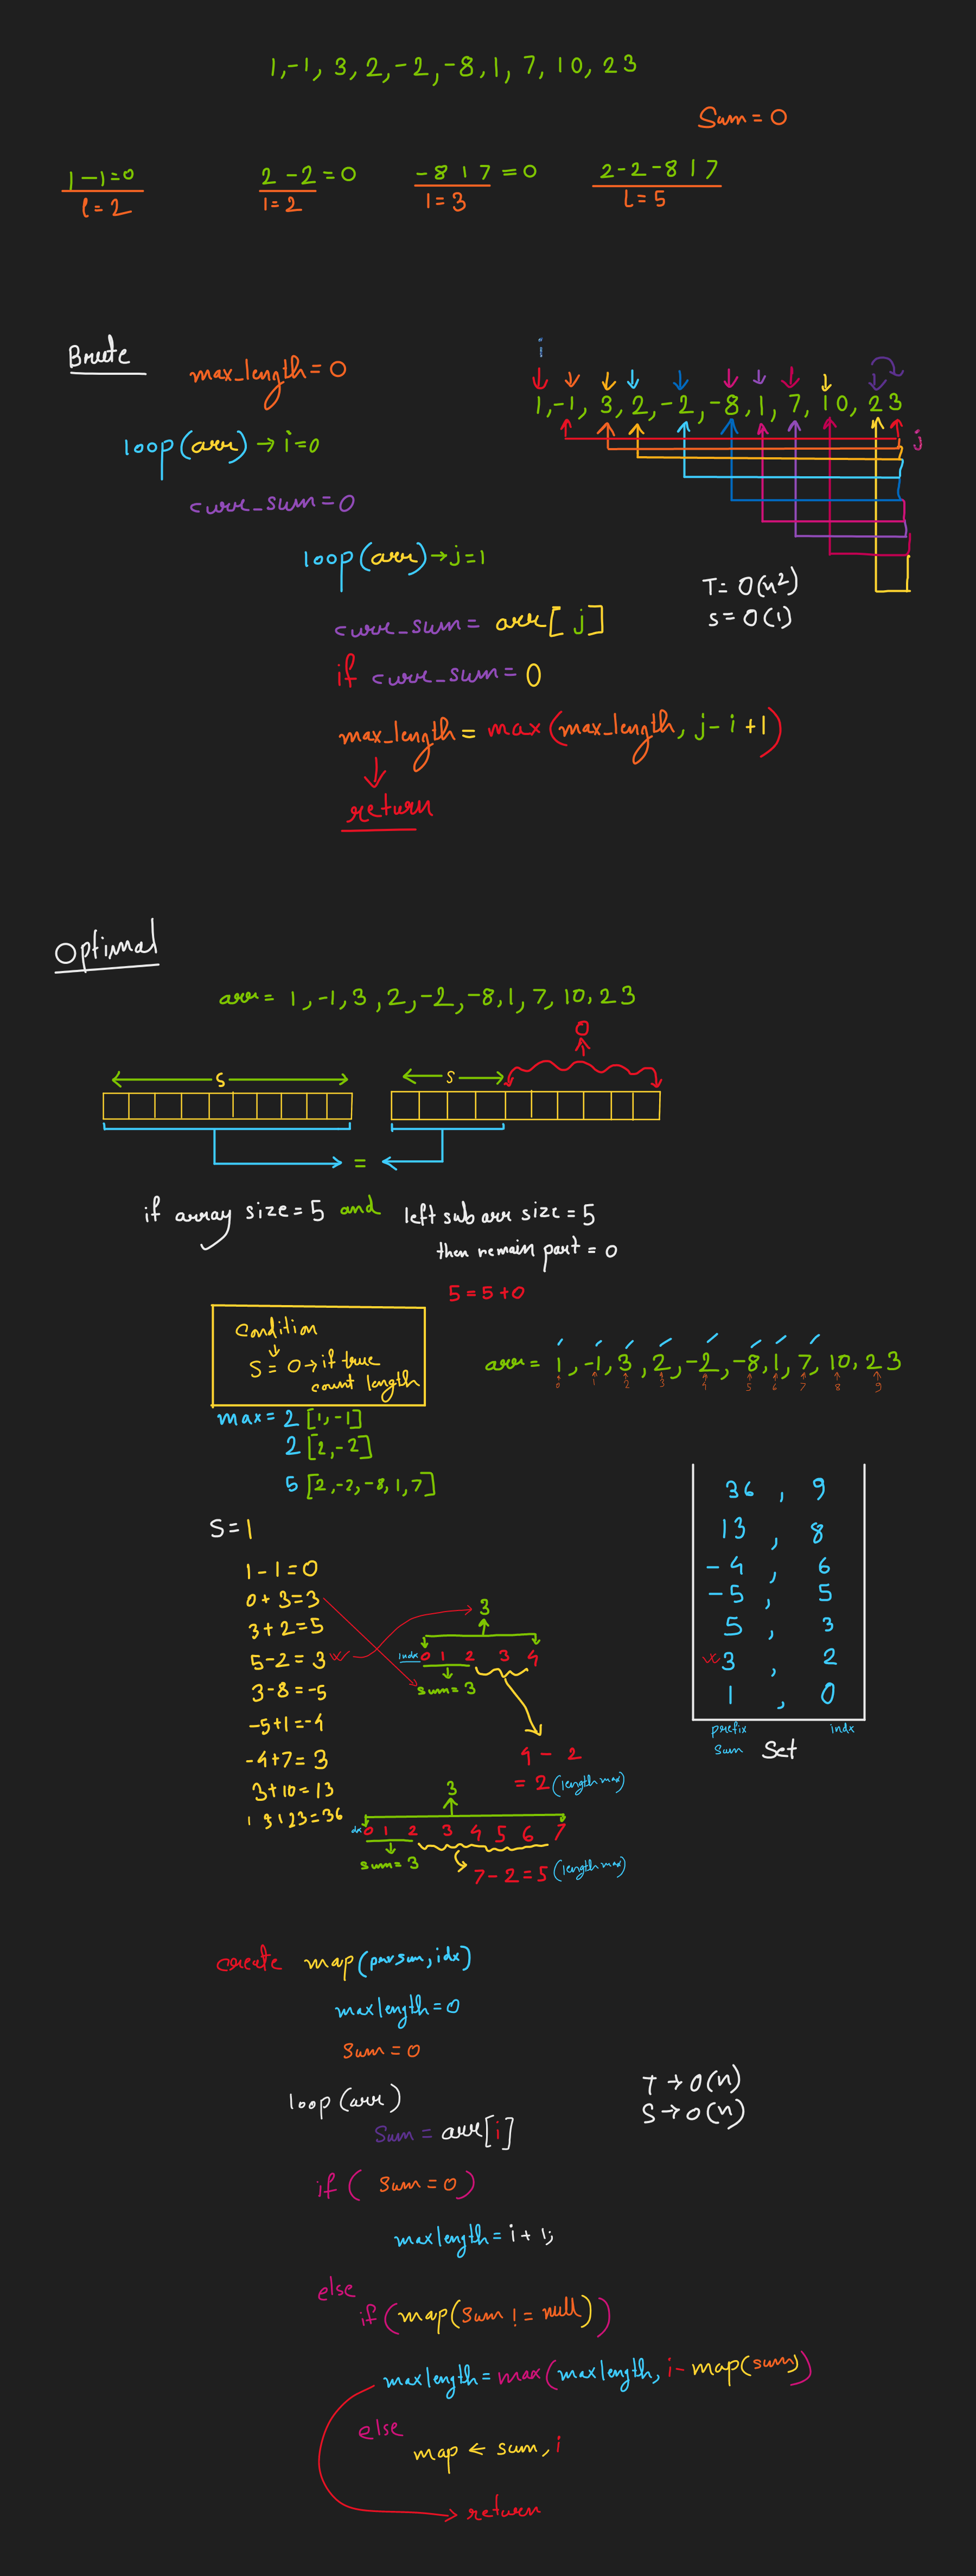 1,-1, 3, 2, -2, -8, 1, 7, 10, 23
Sum = 0
1 - 1 = 0
l = 2
2 - 2 = 0
l = 2
-8 1 7 = 0
l = 3
2 - 2 - 8 1 7
L = 5
Brute
max_length = 0
loop(arr) → i=0
curr_sum = 0
loop(arr) → j=1
curr_sum = arr[j]
if curr_sum = 0
max_length = max(max_length, j - i + 1)
return
i
1,-1, 3, 2, -2, -8, 1, 7, 10, 23
j
T = O(n²)
S = O(1)
Optimal
arr = 1, -1, 3, 2, -2, -8, 1, 7, 10, 23
0
S
S
=
if array size = 5 and left sub arr size = 5
then remain part = 0
5 = 5 + 0
Condition
S = 0 → if true
count length
arr = 1, -1, 3, 2, -2, -8, 1, 7, 10, 23
0 1 2 3 4 5 6 7 8 9
max = 2 [1, -1]
2 [2, -2]
5 [2, -2, -8, 1, 7]
S = 1
1 - 1 = 0
0 + 3 = 3
3 + 2 = 5
5 - 2 = 3
3 - 8 = -5
-5 + 1 = -4
-4 + 7 = 3
3 + 10 = 13
1 3 1 23 = 36
3
indx 0 1 2 3 4
sum = 3
4 - 2
= 2 (length max)
3
idx 0 1 2 3 4 5 6 7
sum = 3
7 - 2 = 5 (length max)
36 , 9
13 , 8
-4 , 6
-5 , 5
5 , 3
3 , 2
1 , 0
prefix sum
indx
Set
create map(
sum, idx)
maxlength = 0
Sum = 0
loop(arr)
Sum = arr[i]
if ( Sum = 0 )
maxlength = i + 1;
else
if (map(sum != null))
maxlength = max(maxlength, i - map(sum))
else
map ← sum, i
return
T → O(n)
S → O(n)